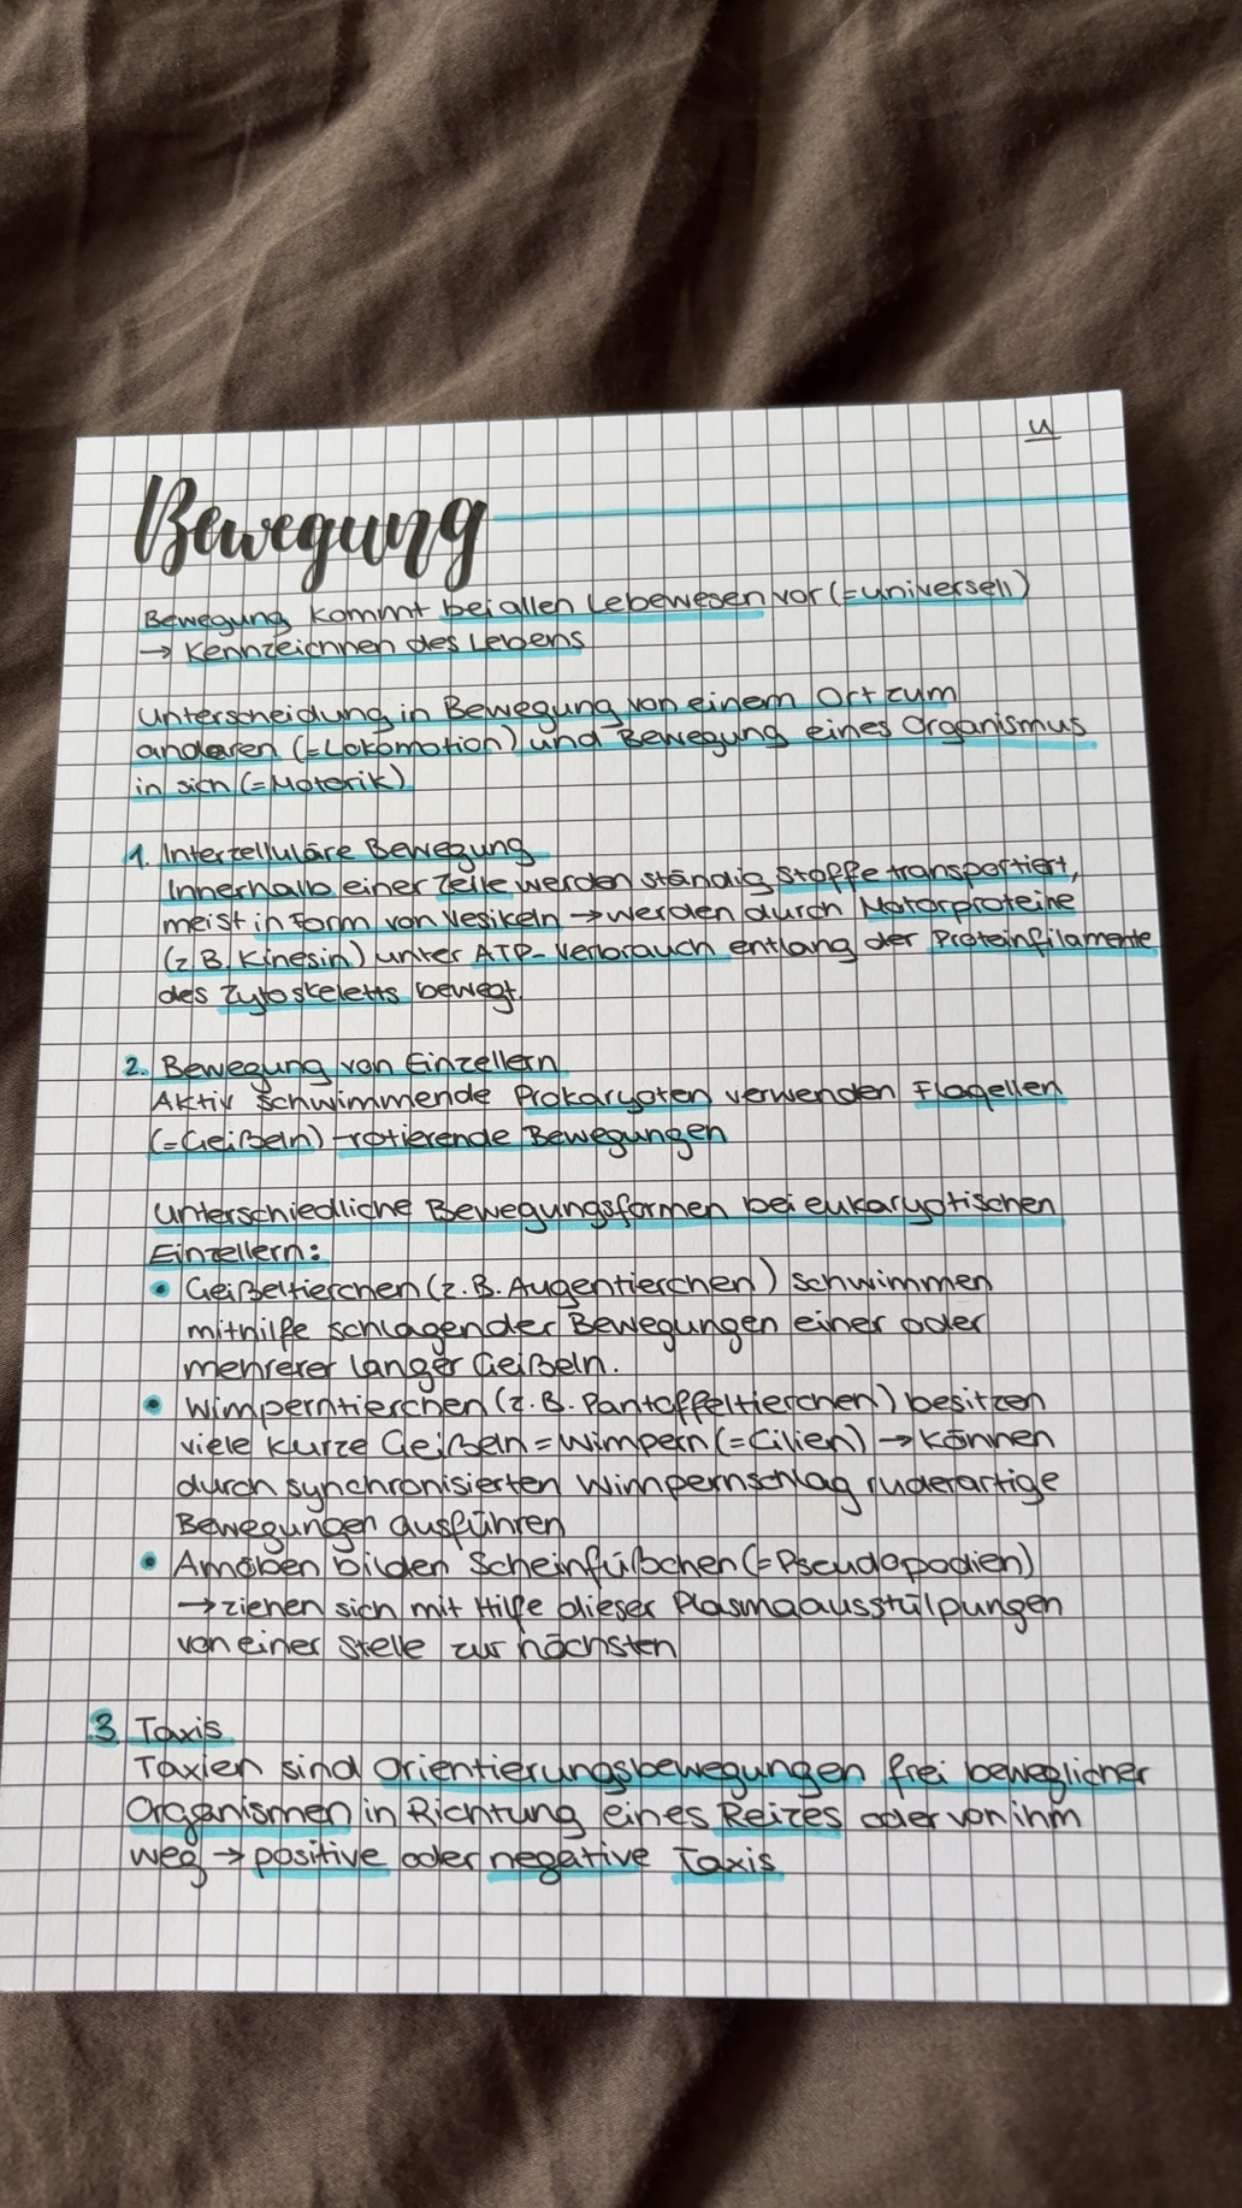 4
Bewegung
Bewegung kommt bei allen Lebewesen vor (=universell)
→ Kennzeichnen des Lebens
Unterscheidung in Bewegung von einem Ort zum
anderen (=Lokomotion) und Bewegung eines Organismus
in sich (=Motorik)
1. Interzelluläre Bewegung
Innerhalb einer Zelle werden ständig Stoffe transportiert,
meist in Form von Vesikeln → werden durch Motorproteine
(z.B. Kinesin) unter ATP-Verbrauch entlang der Proteinfilamente
des Zytoskeletts bewegt.
2. Bewegung von Einzellern
Aktiv schwimmende Prokaryoten verwenden Flagellen
(=Geißeln) -rotierende Bewegungen
Unterschiedliche Bewegungsformen bei eukaryotischen
Einzellern:
• Geißeltierchen (z.B. Augentierchen) schwimmen
mithilfe schlagender Bewegungen einer oder
mehrerer langer Geißeln.
• Wimperntierchen (z.B. Pantoffeltierchen) besitzen
viele kurze Geißeln = Wimpern (=Cilien) → können
durch synchronisierten Wimpernschlag ruderartige
Bewegungen ausführen
• Amöben bilden Scheinfüßchen (=Pseudopodien)
→ ziehen sich mit Hilfe dieser Plasmaausstülpungen
von einer Stelle zur nächsten
3 Taxis
Taxien sind Orientierungsbewegungen frei beweglicher
Organismen in Richtung eines Reizes oder von ihm
weg → positive oder negative Taxis